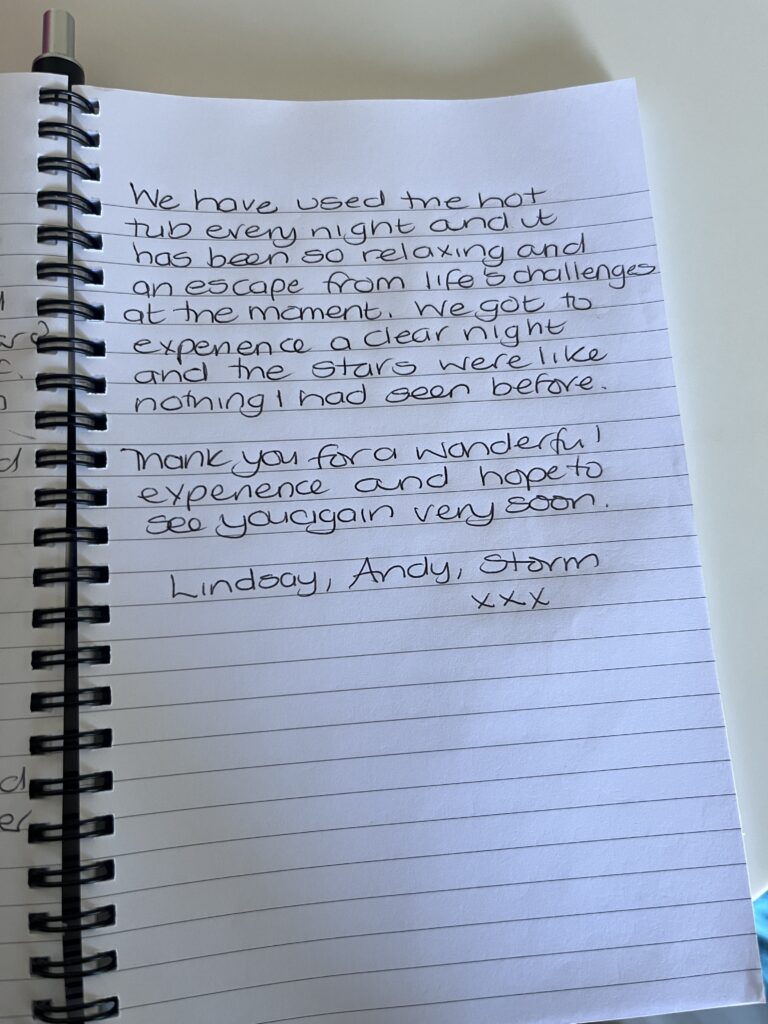 We have used the hot
tub every night and it
has been so relaxing and
an escape from life's challenges
at the moment. We got to
experience a clear night
and the stars were like
nothing I had seen before.
Thank you for a wonderful
experience and hope to
see you again very soon.
Lindsay, Andy, Storm
xxx